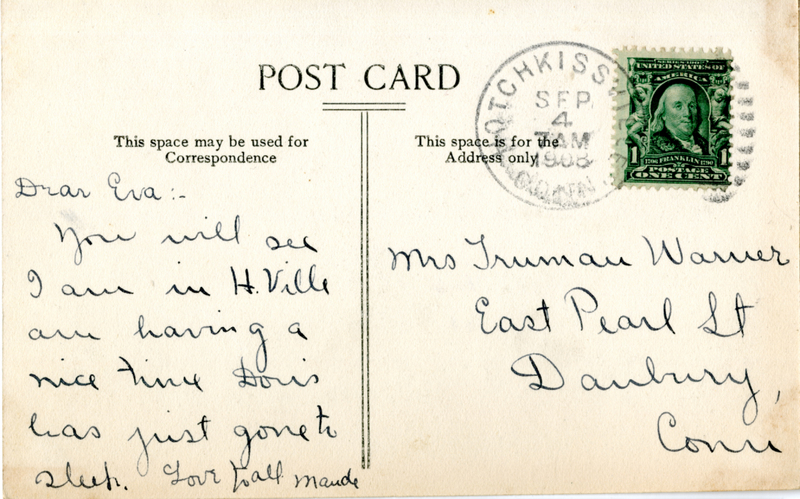 POST CARD
HOTCHKISSVILLE
SEP
4
7 AM
1908
CONN.
SERIES 1902
UNITED STATES OF
AMERICA
1 1
1706 FRANKLIN 1790
POSTAGE
ONE CENT
This space may be used for
Correspondence
This space is for the
Address only
Dear Eva:-
You will see
I am in H. Ville
am having a
nice time Doris
has just gone to
sleep. Love to all Maude
Mrs Truman Warner
East Pearl St
Danbury,
Conn